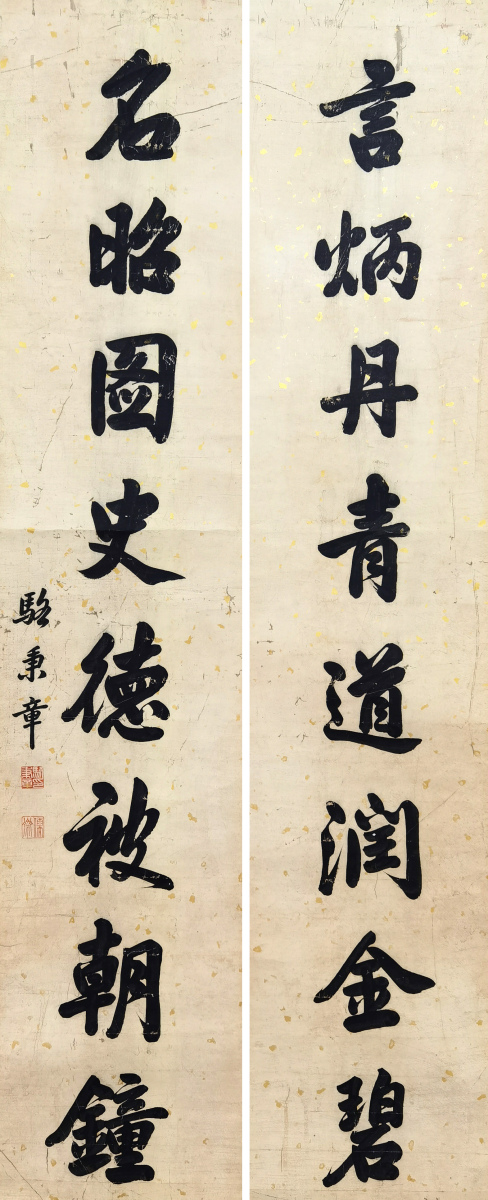 言炳丹青道潤金碧
名昭圖史德被朝鐘
駱秉章